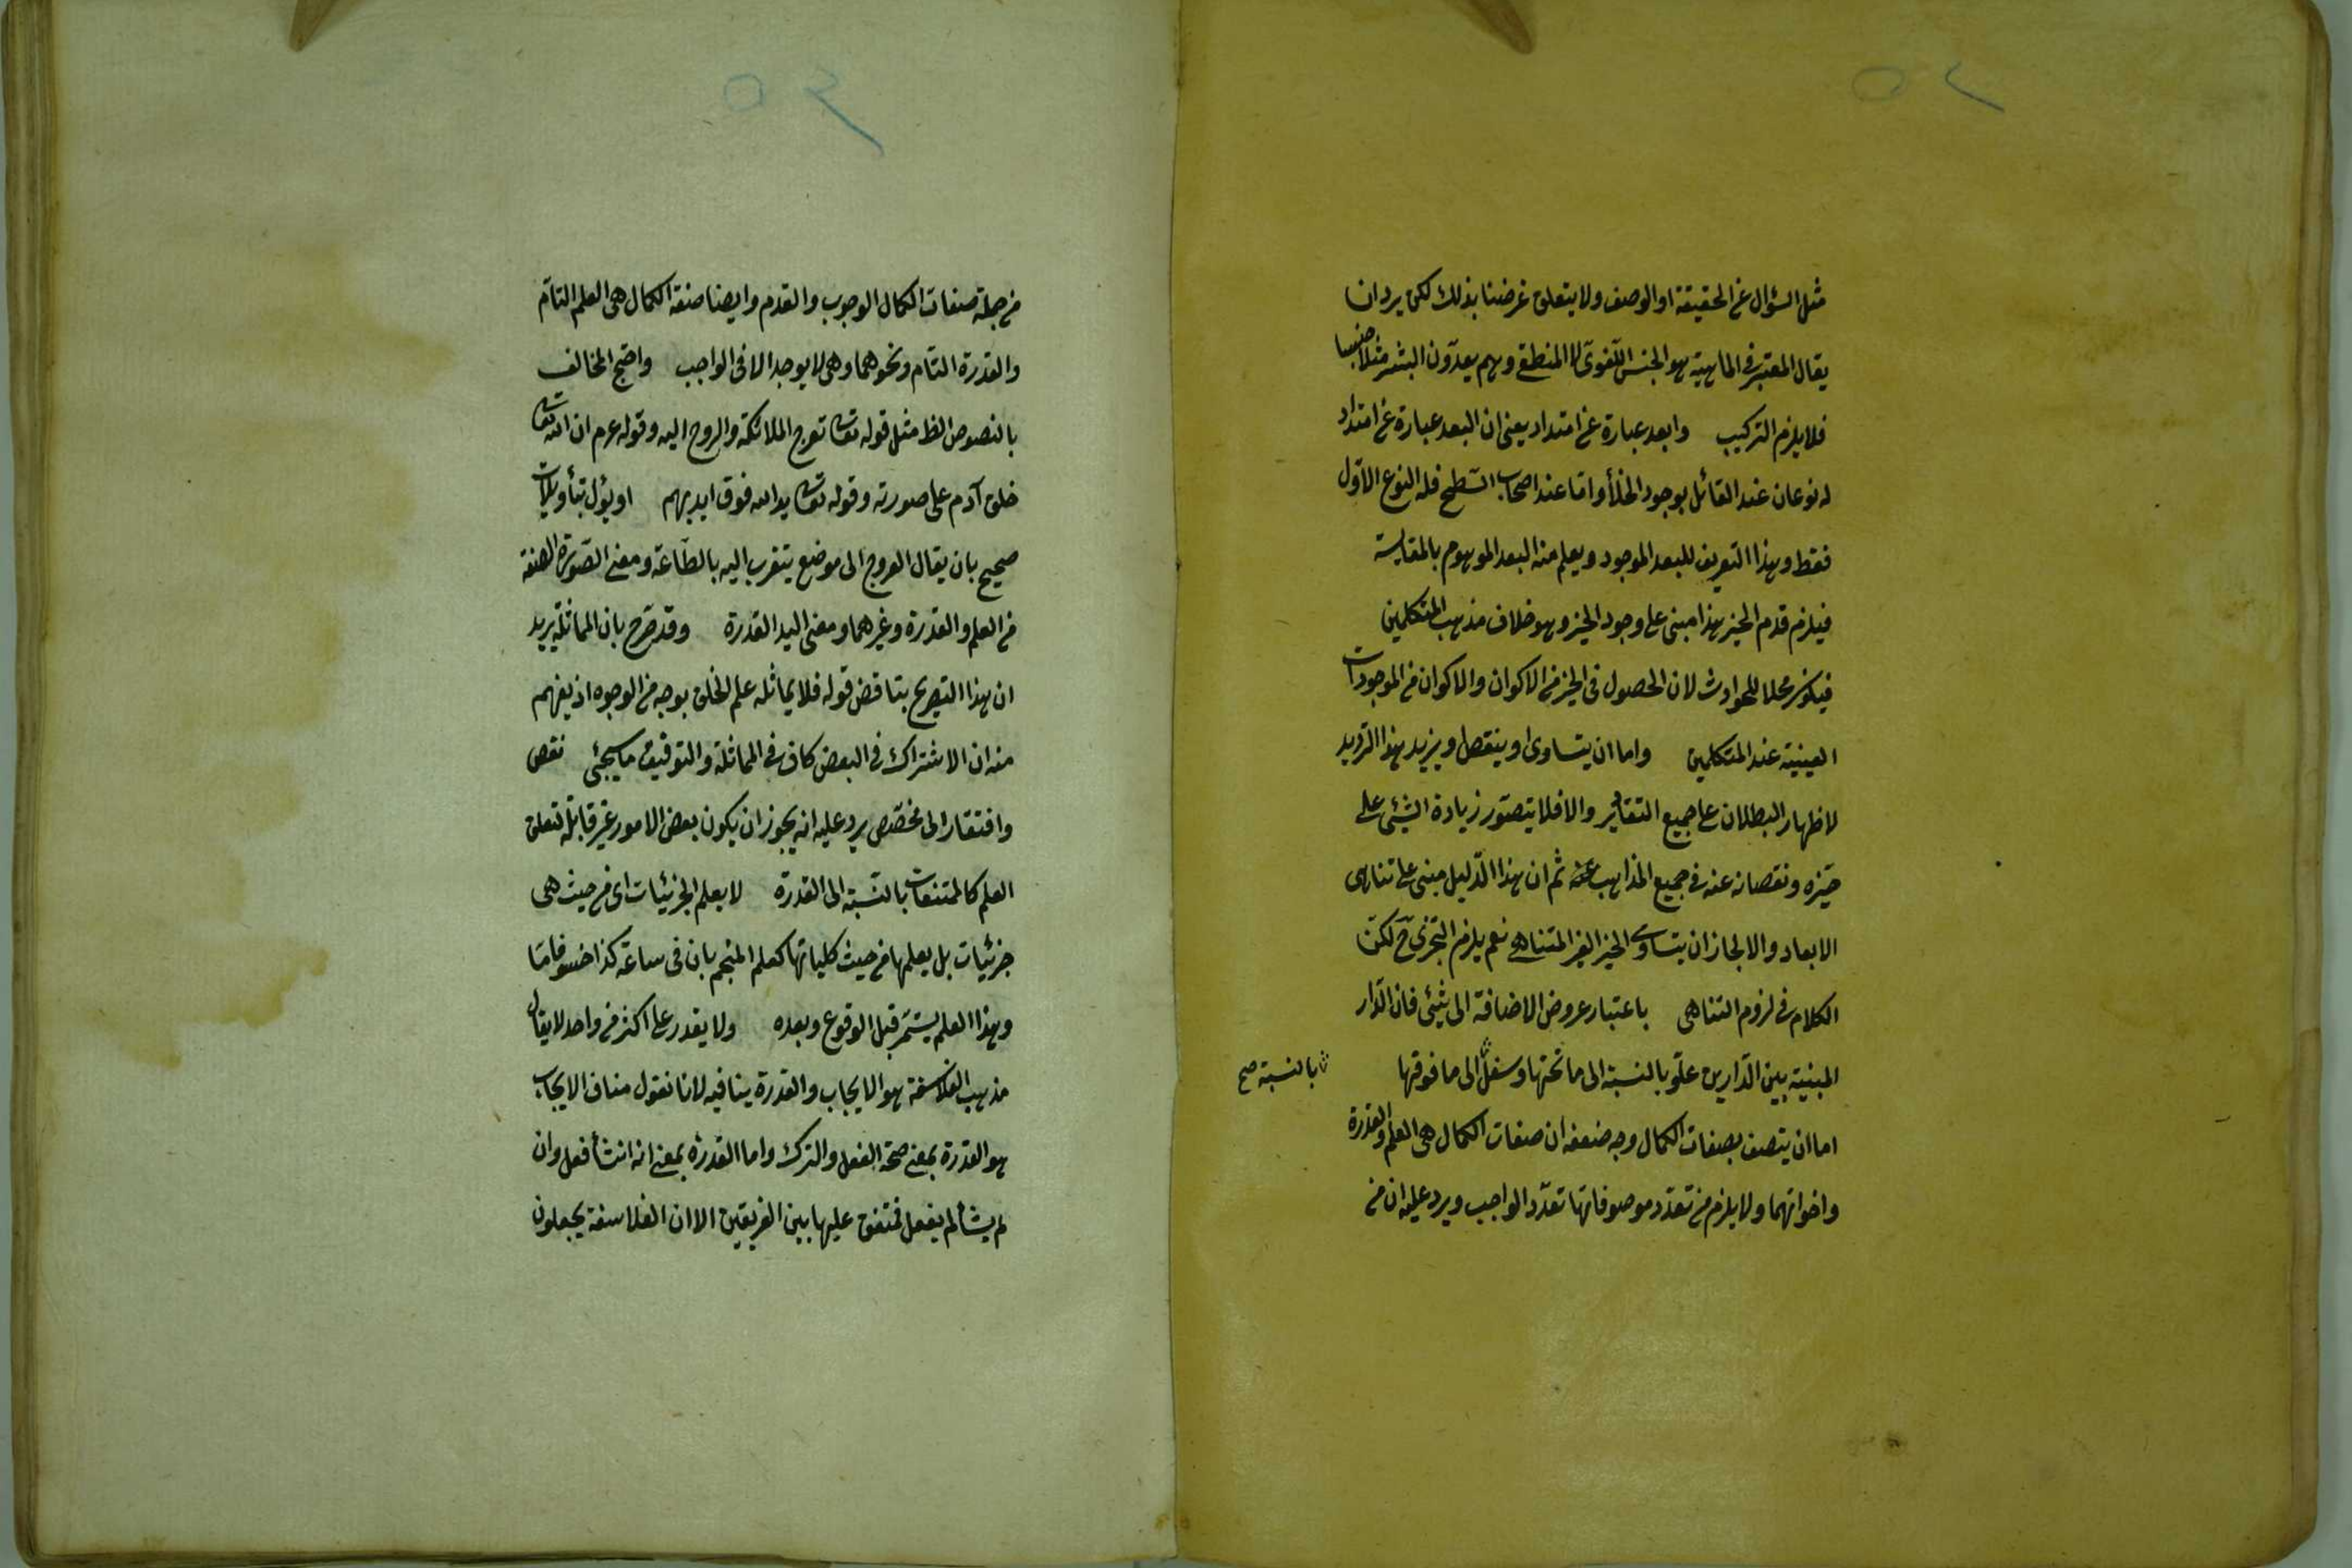 ٥٢
مثل السؤال عن الحقيقة او الوصف ولا يتعلق غرضنا بذلك لكن يرد ان
يقال المعتبر في الماهية هو الجنس اللغوى لا المنطقى وهم يعدّون البشر مثلا جنسا
فلا يلزم التركيب وابعد عبارة عن امتداد يعنى ان البعد عبارة عن امتداد
له نوعان عند القائل بوجود الخلأ واما عند اصحاب السّطح فله النوع الاوّل
فقط وهذا التعريف للبعد الموجود ويعلم منه البعد الموهوم بالمقايسة
فيلزم قدم الحيز هذا مبنى على وجود الحيز وهو خلاف مذهب المتكلمين
فيكون محلا للحوادث لان الحصول فى الحيز من الاكوان والاكوان من الموجودات
العينية عند المتكلمين واما ان يتساوى او ينقص او يزيد هذا الترديد
لاظهار البطلان على جميع التقادير والا فلا يتصوّر زيادة الشئ على
حيّزه ونقصانه عنه في جميع المذاهب ثم ان هذا الدّليل مبنى على تناهى
الابعاد والا لجاز ان يتساوى الحيز الغير المتناهى نعم يلزم التجزى ح لكن
الكلام في لزوم التناهى باعتبار عروض الاضافة الى شئ فان الدّار
المبنية بين الدّارين علو بالنسبة الى ما تحتها وسفل الى ما فوقها
بالنسبة صح
اما ان يتصف بصفات الكمال وجه ضعفه ان صفات الكمال هى العلم والقدرة
واخواتهما ولا يلزم من تعدّد موصوفاتها تعدّد الواجب ويرد عليه ان من
٥٣
من جملة صفات الكمال الوجوب والقدم وايضا صفة الكمال هى العلم التامّ
والقدرة التام ونحوهما وهى لا يوجد الا فى الواجب واحتج المخالف
بالنصوص الظ مثل قوله تعالى تعرج الملائكة والروح اليه وقوله عم ان الله تعالى
خلق آدم على صورته وقوله تعالى يد الله فوق ايديهم او يؤل بتأويلات
صحيح بان يقال العروج الى موضع يتقرب اليه بالطّاعة ومعنى الصّورة الصفة
من العلم والقدرة وغيرهما ومعنى اليد القدرة وقد صرّح بان المماثلة يريد
ان هذا التصريح يناقض قوله فلا يماثله علم الخلق بوجه من الوجوه اذ يفهم
منه ان الاشتراك في البعض كاف في المماثلة والتوفيق ما سيجئ نقص
وافتقار الى مخصّص يرد عليه انه يجوز ان يكون بعض الامور غير قابلة لتعلق
العلم كالممتنعات بالنسبة الى القدرة لا يعلم الجزئيات اى من حيث هى
جزئيات بل يعلمها من حيث كلياتها كعلم المنجم بان فى ساعة كذا خسوفا ما
وهذا العلم يستمر قبل الوقوع وبعده ولا يقدر على اكثر من واحد لا يقال
مذهب الفلاسفة هو الايجاب والقدرة ينافيه لانا نقول مناف الايجاب
هو القدرة بمعنى صحة الفعل والترك واما القدرة بمعنى انه ان شأ فعل وان
لم يشأ لم يفعل فمتفق عليها بين الفريقين الا ان الفلاسفة يجعلون